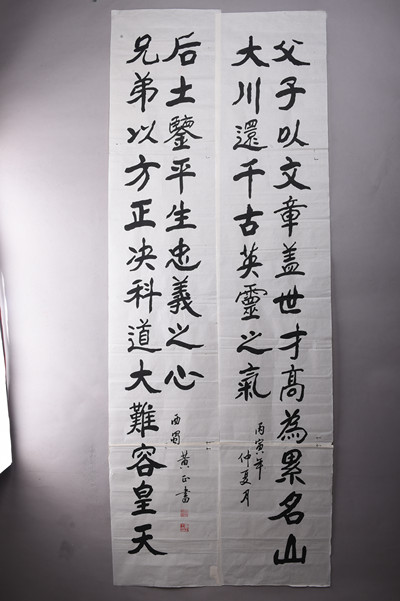 父子以文章盖世才高為累名山
大川還千古英靈之氣
丙寅年
仲夏月
兄弟以方正决科道大難容皇天
后土鑒平生忠義之心
西蜀 黄正書